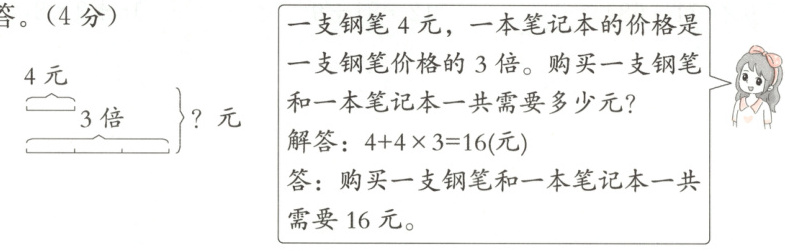 答。(4分)
4元
3倍
? 元
一支钢笔 4 元，一本笔记本的价格是
一支钢笔价格的 3 倍。购买一支钢笔
和一本笔记本一共需要多少元?
解答：4+4×3=16(元)
答：购买一支钢笔和一本笔记本一共
需要 16 元。